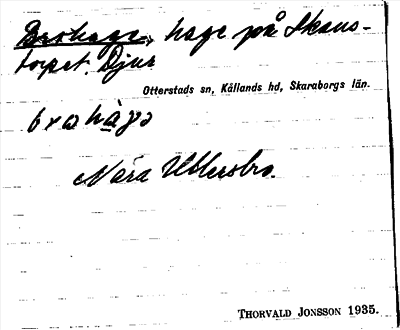 Brohage, hage på Skans-
torpet. Djur
Otterstads sn, Kållands hd, Skaraborgs län.
Nära Utlersbro.
THORVALD JONSSON 1935.